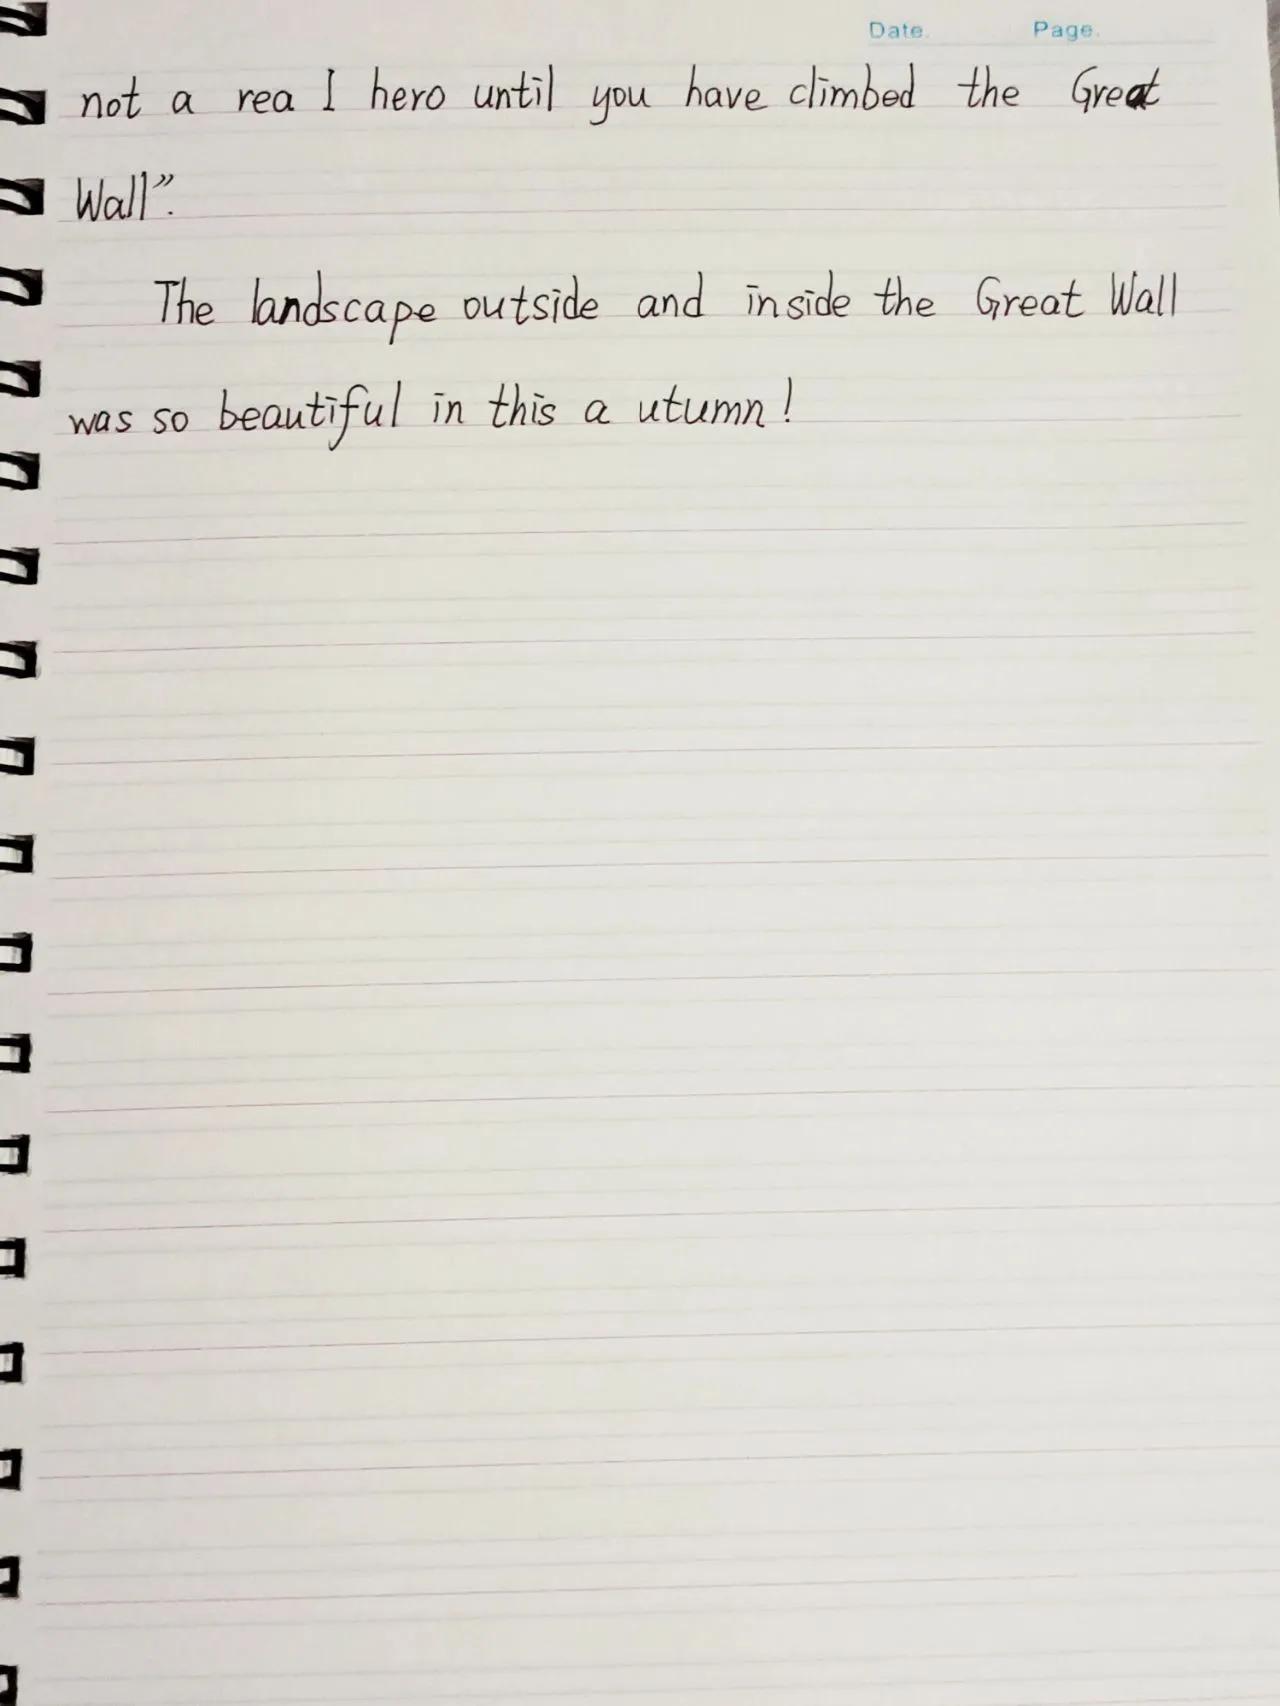 Date. Page.
not a rea l hero until you have climbed the Great
Wall”.
The landscape outside and inside the Great Wall
was so beautiful in this a utumn!